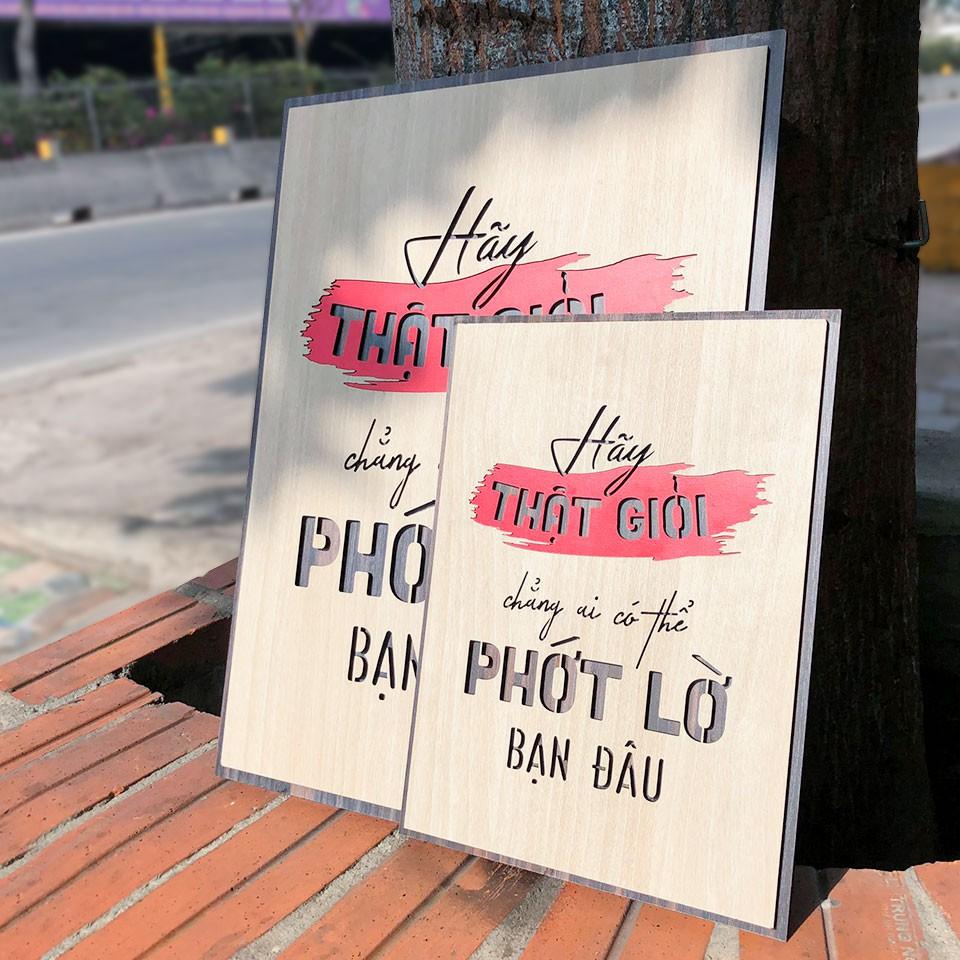 Hãy
THẬT
chẳng
PHỚ
BẠN
Hãy
THẬT GIỎI
chẳng ai có thể
PHỚT LỜ
BẠN ĐÂU